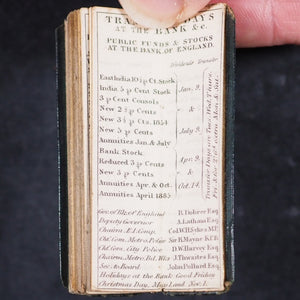 TRANSFER DAYS
AT THE BANK &c.
PUBLIC FUNDS & STOCKS
AT THE BANK OF ENGLAND.
Dividends Transfer
East India 10½ p Ct. Stock
India 5 p Cent Stock Jan. 9.
3 p Cent Consols
New 2½ p Cents
New 3½ p Cts. 1854
New 5 p Cents July 9.
Annuities Jan. & July
Bank Stock
Reduced 3 p Cents Apr. 9.
New 3 p Cents
Annuities Apr. & Oct. Oct. 14.
Annuities April 1885
Gov. of Bk. of England B. Dobree Esq
Deputy Governor A. Latham Esq
Chairn. E.I. Comp. Col. W.H. Sykes MP.
Chf. Com. Metro. Police Sir R. Mayne KCB.
Chf. Com. City Police D.W. Harvey Esq
Chairn. Metro. Bd. Wks J. Thwaites Esq
Sec. to Board J. Pollard Esq
Holidays at the Bank Good Friday
Christmas Day, May 1 and Nov. 1.